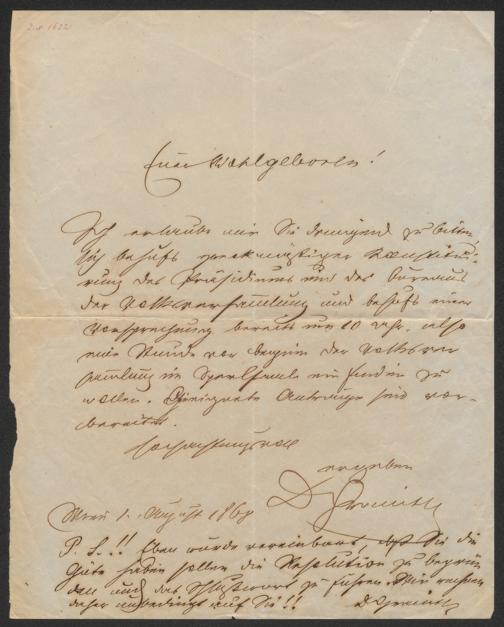 Euer Wohlgeboren!
Ich erlaube mir Sie dringend zu bitten,
sich behufs zweckmäßiger Konstitui-
rung des Präsidiums und des Bureaus
der Volksversammlung und behufs einer
Vorsprechung bereits um 10 Uhr, also
eine Stunde vor Beginn der Volksver
sammlung im Sperlsaale einfinden zu
wollen. Geeignete Anträge sind vor-
bereitet.
Hochachtungsvoll
ergeben
Wien 1. August 1868
P. S.!! Eben wurde vereinbart, daß Sie die
Güte haben sollen die Resolution zu begrün
den und das Schlußwort zu führen. Wir rechnen
daher unbedingt auf Sie!!